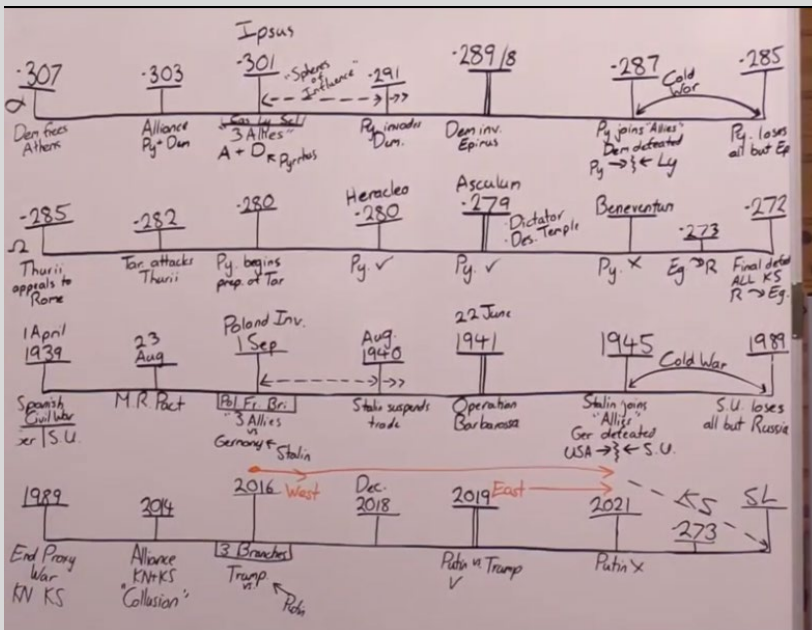 Ipsus
-307
-303
-301
"Spheres of Influence"
-291
-289/8
-287
Cold War
-285
α
Dem frees
Athens
Alliance
Py + Dem
Cas Ly Sel
"3 Allies"
A + D
Pyrrhus
Py invades
Dem.
Dem inv.
Epirus
Py joins "Allies"
Dem defeated
Py → ← Ly
Py. loses
all but Ep
-285
-282
-280
Heraclea
-280
Asculum
-279
· Dictator
· Des. Temple
Beneventum
-273
-272
Ω
Thurii
appeals to
Rome
Tar. attacks
Thurii
Py. begins
prep. at Tar
Py. ✓
Py. ✓
Py. X
Eg → R
Final defeat
ALL KS
R → Eg.
1 April
1939
23
Aug
Poland Inv.
1 Sep
Aug.
1940
22 June
1941
1945
Cold War
1989
Spanish
Civil War
Ger | S.U.
M.R. Pact
Pol Fr. Bri
"3 Allies
vs
Germany ← Stalin
Stalin suspends
trade
Operation
Barbarossa
Stalin joins
"Allies"
Ger defeated
USA → ← S.U.
S.U. loses
all but Russia
1989
2014
2016
West
Dec.
2018
2019
East
2021
KS
-273
SL
End Proxy
War
KN KS
Alliance
KN+KS
"Collusion"
3 Branches
Trump
vs.
Putin
Putin vs. Trump
✓
Putin X